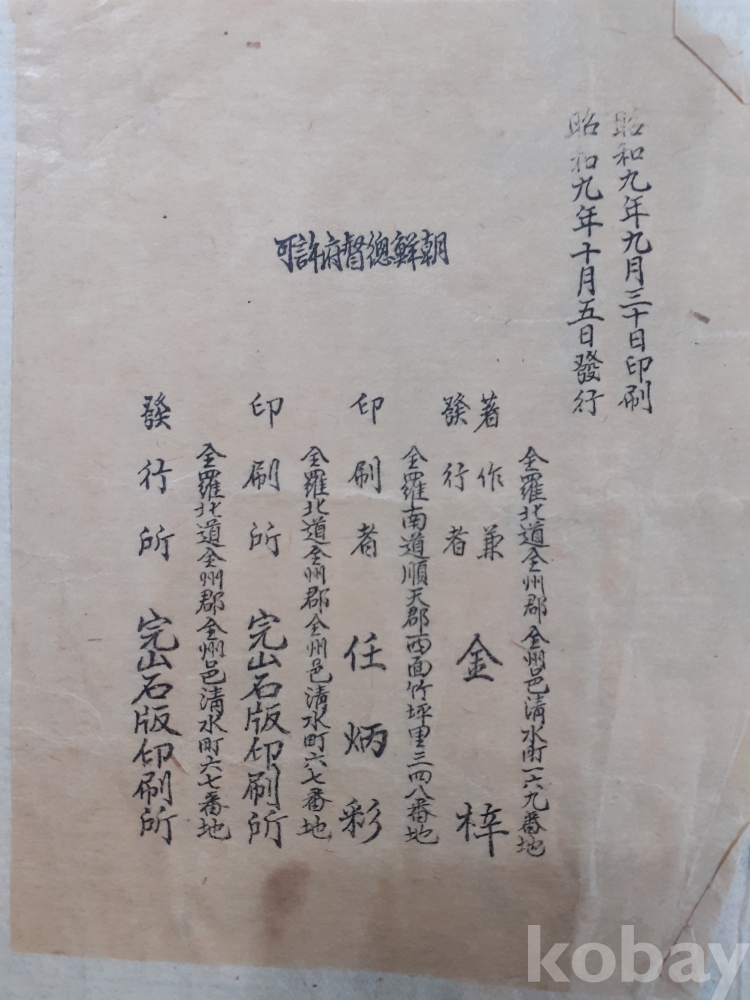 昭和九年九月三十日印刷
昭和九年十月五日發行
朝鮮總督府許可
全羅北道全州郡全州邑淸水町一六九番地
著作兼
發行者 金梓
全羅南道順天郡西面竹坪里三四八番地
印刷者 任炳彩
全羅北道全州郡全州邑淸水町六七番地
印刷所 完山石版印刷所
全羅北道全州郡全州邑淸水町六七番地
發行所 完山石版印刷所
kobay